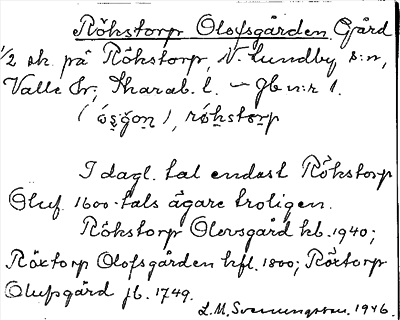 Röhstorp Olofsgården Gård
1/2 sk. på Röhstorp, N. Lundby s:n,
Valle hr, Skarab. l. – Jb n:r 1.
I dagl. tal endast Röhstorp
Oluf 1600-tals ägare troligen.
Röhstorp Olovsgård kb. 1940;
Röxtorp Olofsgården hfl. 1800; Röxtorp
Olufsgård jb. 1749.
L. M. Svenungsson. 1946.